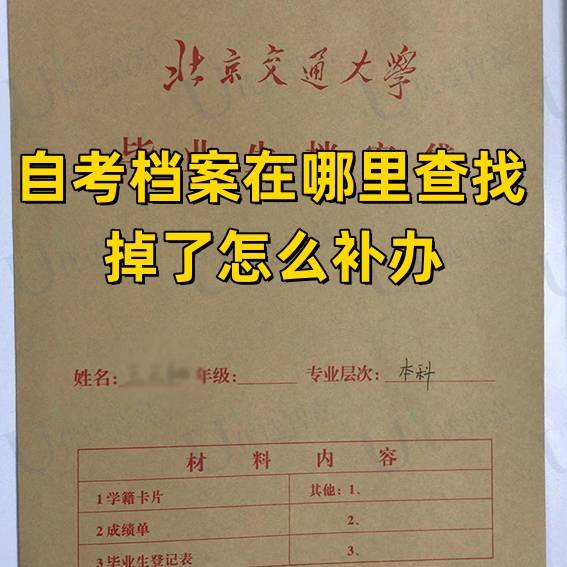 北京交通大學
自考档案在哪里查找
掉了怎么补办
姓名: 年级: 专业层次: 本科
材料内容
1学籍卡片 其他: 1、
2成绩单 2、
3毕业生登记表 3、